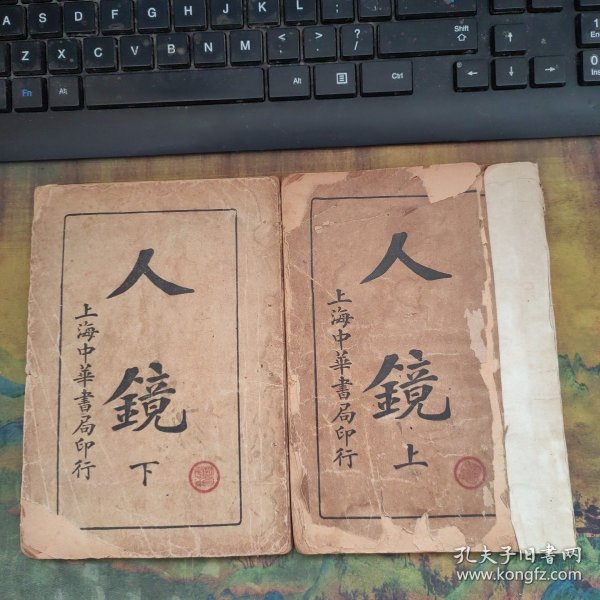 A S D F G H J K L
Z X C V B N M < , > . ? / Shift
Fn Alt Alt Ctrl
1 End
0 Ins
人鏡
下
上海中華書局印行
人鏡
上
上海中華書局印行
孔夫子旧書网
www.kongfz.com